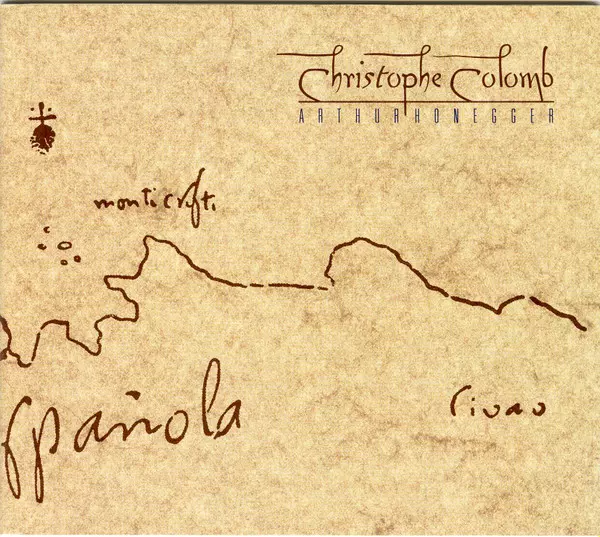 Christophe Colomb
ARTHUR HONEGGER
monti cristi
española
civao